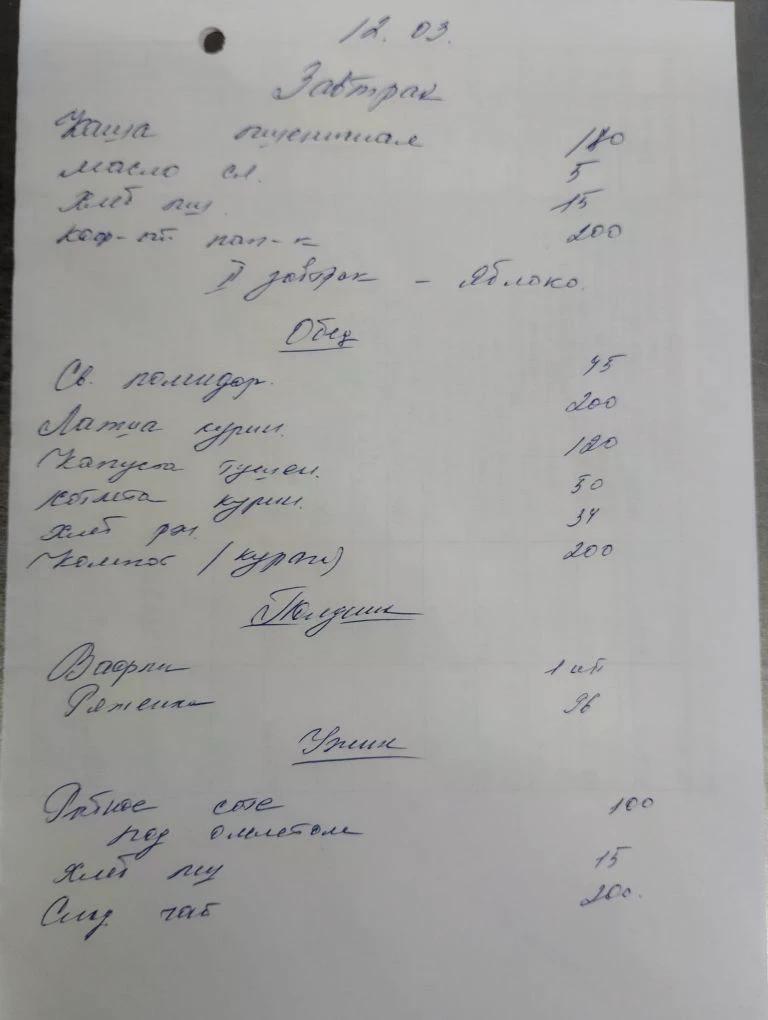 12. 03.
Завтрак
Каша пшеничная 180
Масло сл. 5
Хлеб пш. 15
Коф-ый нап-к 200
II завтрак – Яблоко.
Обед
Св. помидор. 45
Лапша курин. 200
Капуста тушен. 120
Котлета курин. 50
Хлеб рж. 34
Компот (курага) 200
Полдник
Вафли 1 шт
Ряженка 96
Ужин
Рыбное соте 100
под омлетом
Хлеб пш 15
Слад чай 200.